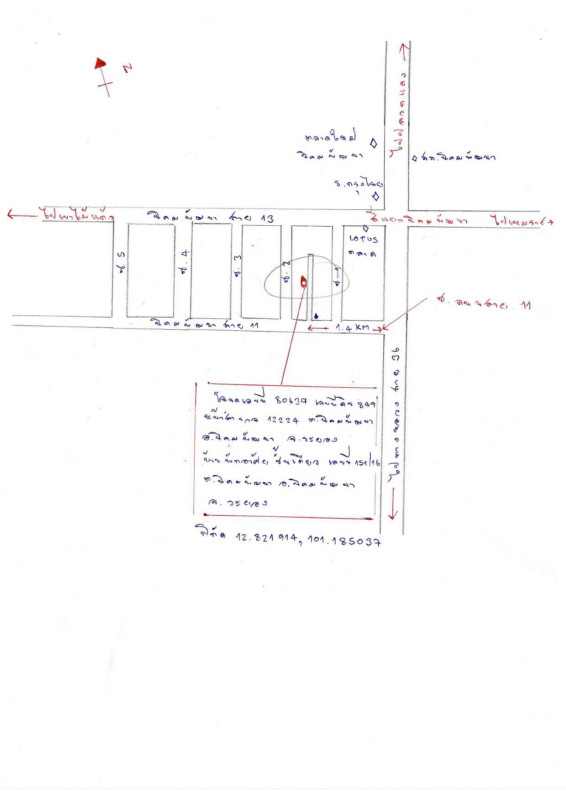 N
ตลาดใหม่
นิคมพัฒนา
สภ.นิคมพัฒนา
ธ.กรุงไทย
นิคมพัฒนา สาย 13
สี่แยกนิคมพัฒนา
LOTUS
ตลาด
ซ.5
ซ.4
ซ.3
ซ.2
ซ.1
นิคมพัฒนา สาย 11
1.4 KM
ซ. ถนนสาย 11
ไปทางหลวงสาย 36
โฉนดเลขที่ 80639 เลขที่ดิน 849
หน้าสำรวจ 12224 ต.นิคมพัฒนา
อ.นิคมพัฒนา จ.ระยอง
บ้านพักอาศัย ชั้นเดียว เลขที่ 151/16
ต.นิคมพัฒนา อ.นิคมพัฒนา
จ. ระยอง
พิกัด 12.821914, 101.185037